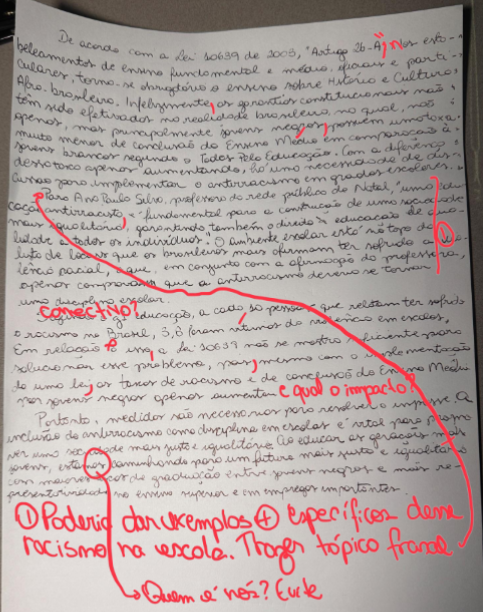 De acordo com a Lei 10639 de 2003, "Artigo 26-A; nos esta-
belecimentos de ensino fundamental e médio, oficiais e parti-
culares, torna-se obrigatório o ensino sobre História e Cultura
Afro-brasileira. Infelizmente, as garantias constitucionais não
têm sido efetivadas na realidade brasileira, no qual, não
apenas, mas principalmente, jovens negros, possuem uma taxa
muito menor de conclusão do Ensino Médio em comparação à
jovens brancos segundo o Todos Pela Educação. Com a diferença
dessa taxa apenas aumentando, há uma necessidade de dis-
cussão para implementar o antirracismo em grades escolares.
Para Ana Paula Silva, professora da rede pública do Natal, "uma edu-
cação antirracista é fundamental para a construção de uma sociedade
mais igualitária, garantindo também o direito à educação de qua-
lidade a todos os indivíduos". O ambiente escolar está no topo da
lista de locais que os brasileiros mais afirmam ter sofrido a vio-
lência racial, o que, em conjunto com a afirmação da professora,
apenas comprovam que a antirracismo deveria se tornar
uma disciplina escolar.
conectivo?
Segundo educação, a cada 10 pessoas que relatam ter sofrido
o racismo no Brasil, 3,8 foram vítimas da violência em escolas,
Em relação a isso, a Lei 10639 não se mostra suficiente para
solucionar esse problema, pois, mesmo com a implementação
de uma lei, as taxas de racismo e de conclusão do Ensino Médio
por jovens negros apenas aumentam e qual o impacto?
Portanto, medidas são necessárias para resolver o impasse. A
inclusão do antirracismo como disciplina em escolas é vital para promo-
ver uma sociedade mais justa e igualitária. Ao educar as gerações mais
jovens, estamos caminhando para um futuro mais justo e igualitário
com maiores taxas de graduação entre jovens negros e mais re-
presentividade no ensino superior e em empregos importantes.
① Poderia dar exemplos ⊕ específicos desse
racismo na escola. Trazer tópico frasal
→ Quem é nós? Evite